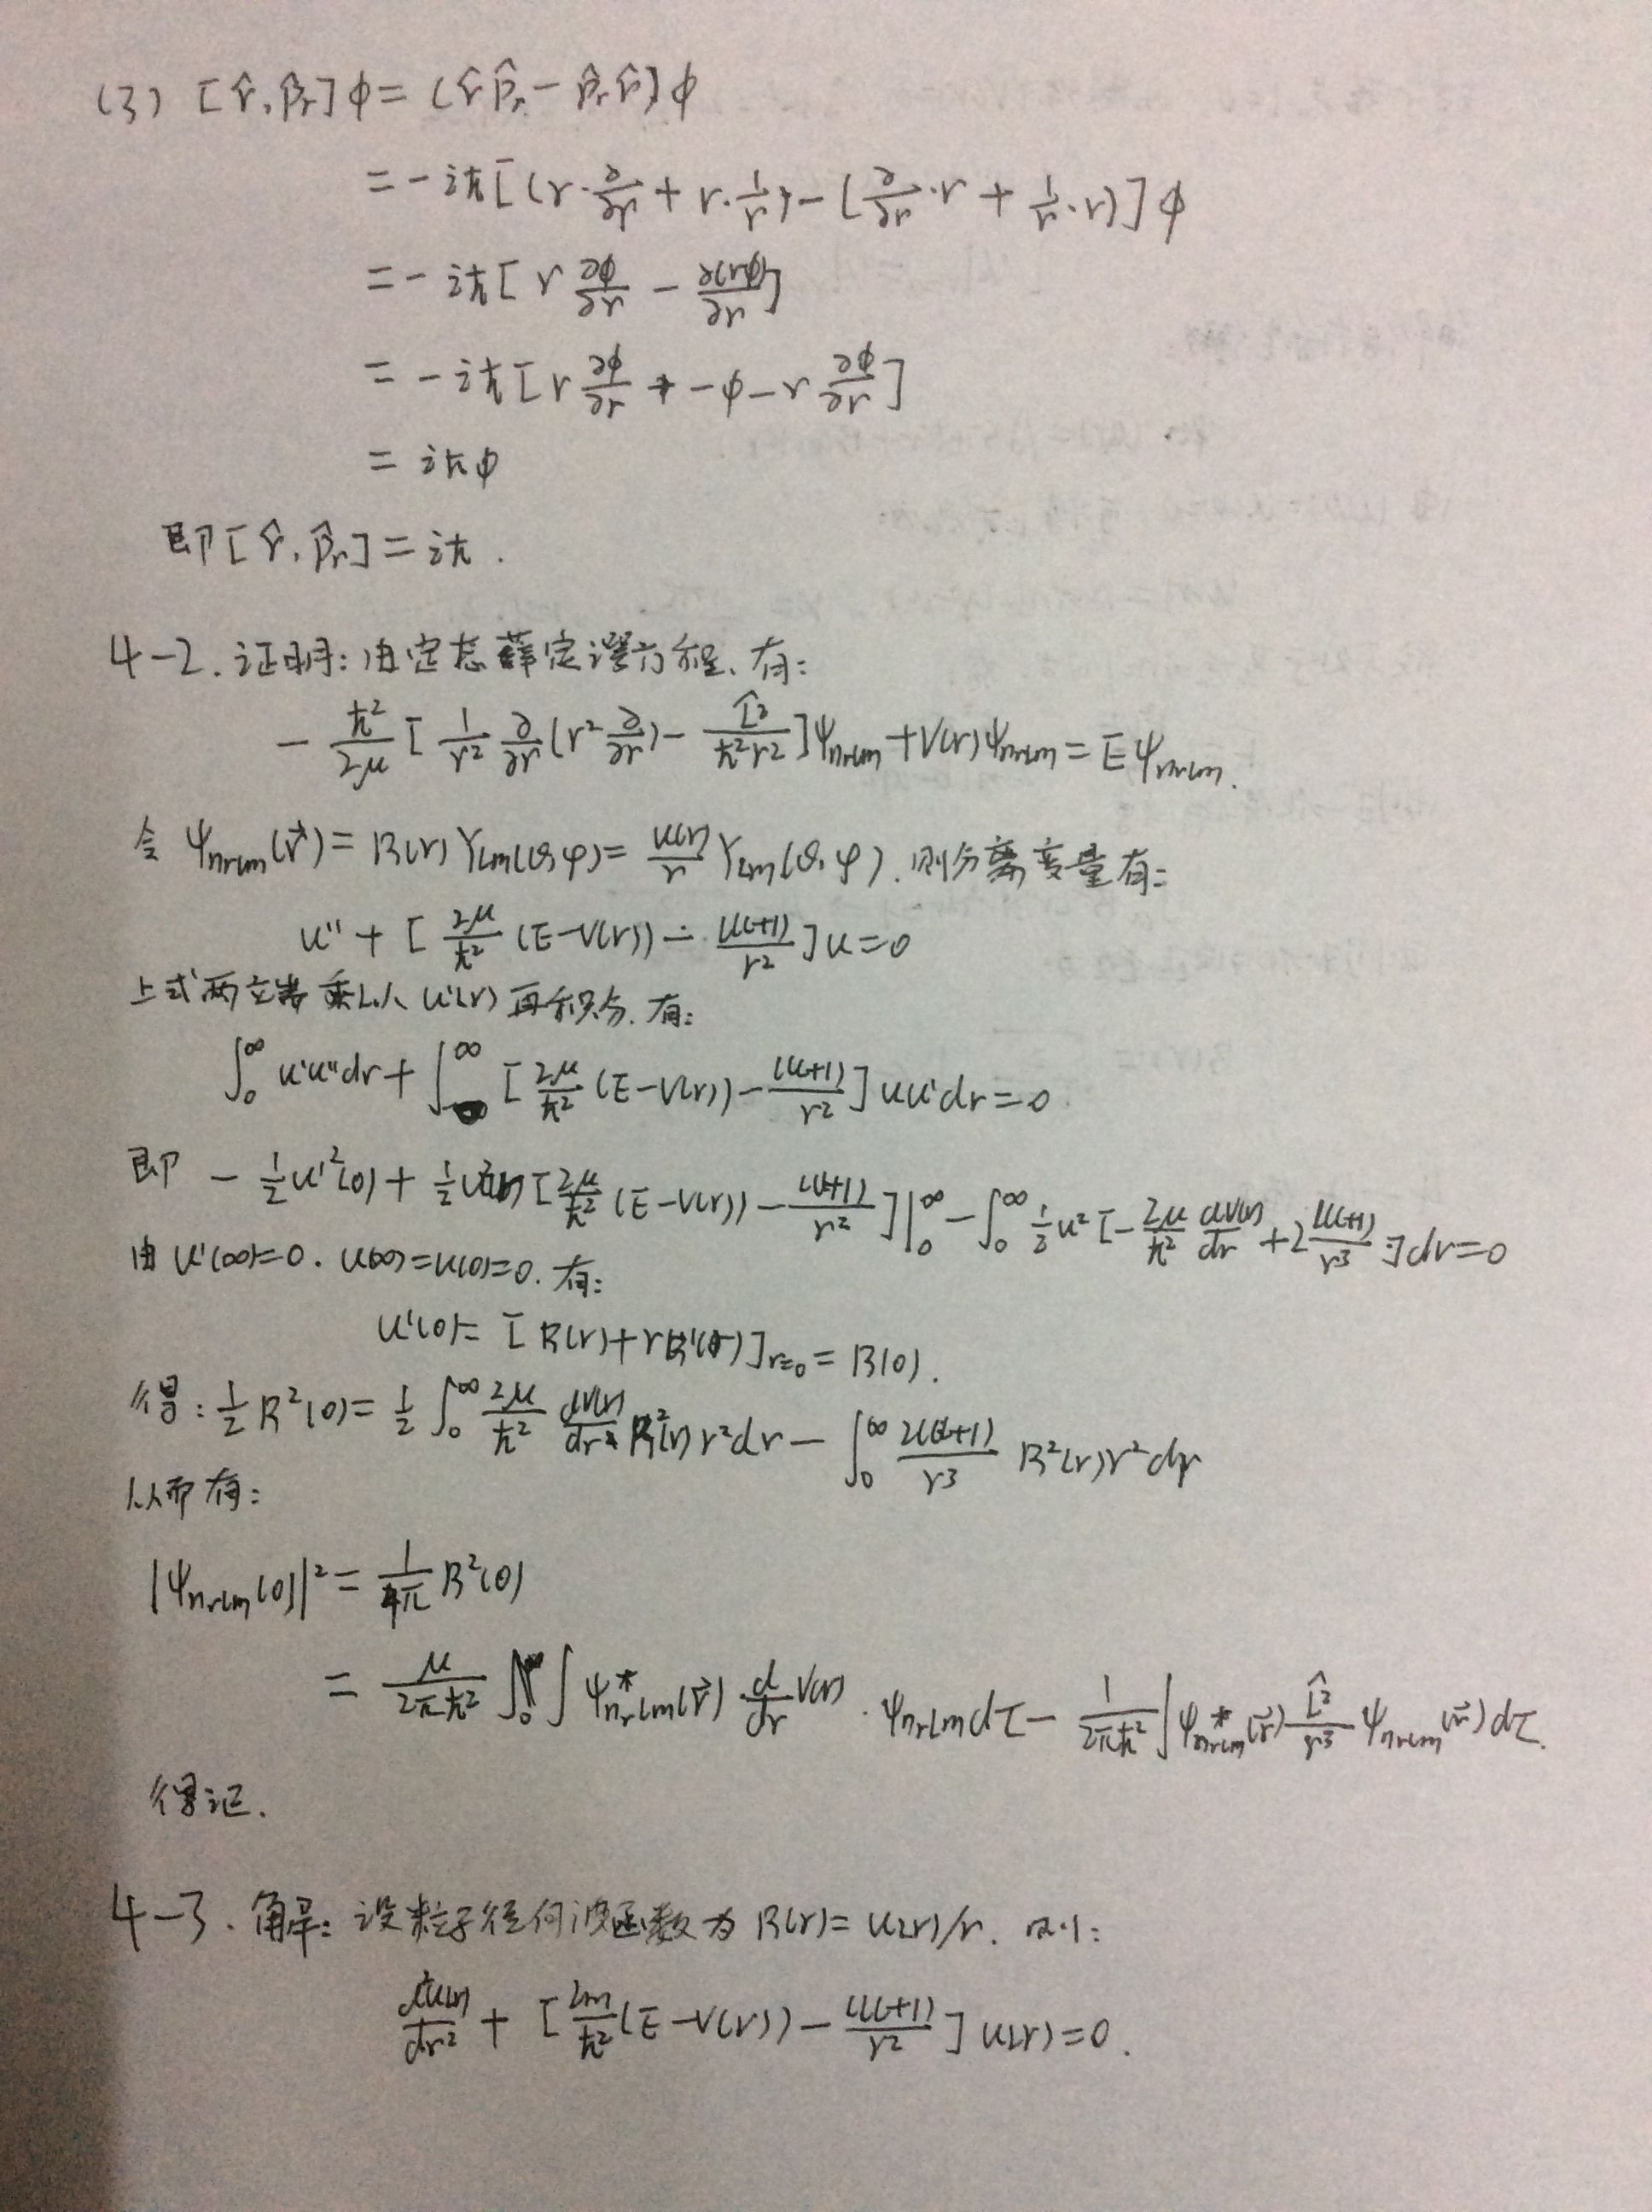 (3) [r̂, p̂r]φ = (r̂p̂r - p̂r r̂)φ
= -iħ[(r·∂/∂r + r·1/r) - (∂/∂r·r + 1/r·r)]φ
= -iħ[r ∂φ/∂r - ∂(rφ)/∂r]
= -iħ[r ∂φ/∂r - φ - r ∂φ/∂r]
= iħφ
即[r̂, p̂r] = iħ.
4-2. 证明: 由定态薛定谔方程, 有:
-ħ²/2μ [1/r² ∂/∂r(r² ∂/∂r) - L̂²/ħ²r²]ψnrlm + V(r)ψnrlm = Eψnrlm.
令 ψnrlm(r⃗) = R(r)Ylm(θ,φ) = u(r)/r Ylm(θ,φ). 则分离变量有:
u'' + [2μ/ħ² (E-V(r)) - l(l+1)/r²]u = 0
上式两边皆乘以 u'(r) 再积分, 有:
∫₀^∞ u'u''dr + ∫₀^∞ [2μ/ħ² (E-V(r)) - l(l+1)/r²]uu'dr = 0
即 -½u'²(0) + ½u²(r)[2μ/ħ² (E-V(r)) - l(l+1)/r²]|₀^∞ - ∫₀^∞ ½u²[-2μ/ħ² dV(r)/dr + 2 l(l+1)/r³]dr = 0
由 u'(∞)=0. u(∞)=u(0)=0. 有:
u'(0) = [R(r)+rR'(r)]r=0 = R(0).
得: ½R²(0) = ½∫₀^∞ 2μ/ħ² dV(r)/dr R²(r)r²dr - ∫₀^∞ l(l+1)/r³ R²(r)r²dr
从而有:
|ψnrlm(0)|² = 1/4π R²(0)
= μ/2πħ² ∫ψ*nrlm(r⃗) d/dr V(r)·ψnrlm dτ - 1/2πħ² ∫ψ*nrlm(r⃗) L̂²/r³ ψnrlm(r⃗)dτ.
得证.
4-3. 解: 设粒子径向波函数为 R(r) = u(r)/r. 则:
d²u(r)/dr² + [2m/ħ² (E-V(r)) - l(l+1)/r²]u(r) = 0.